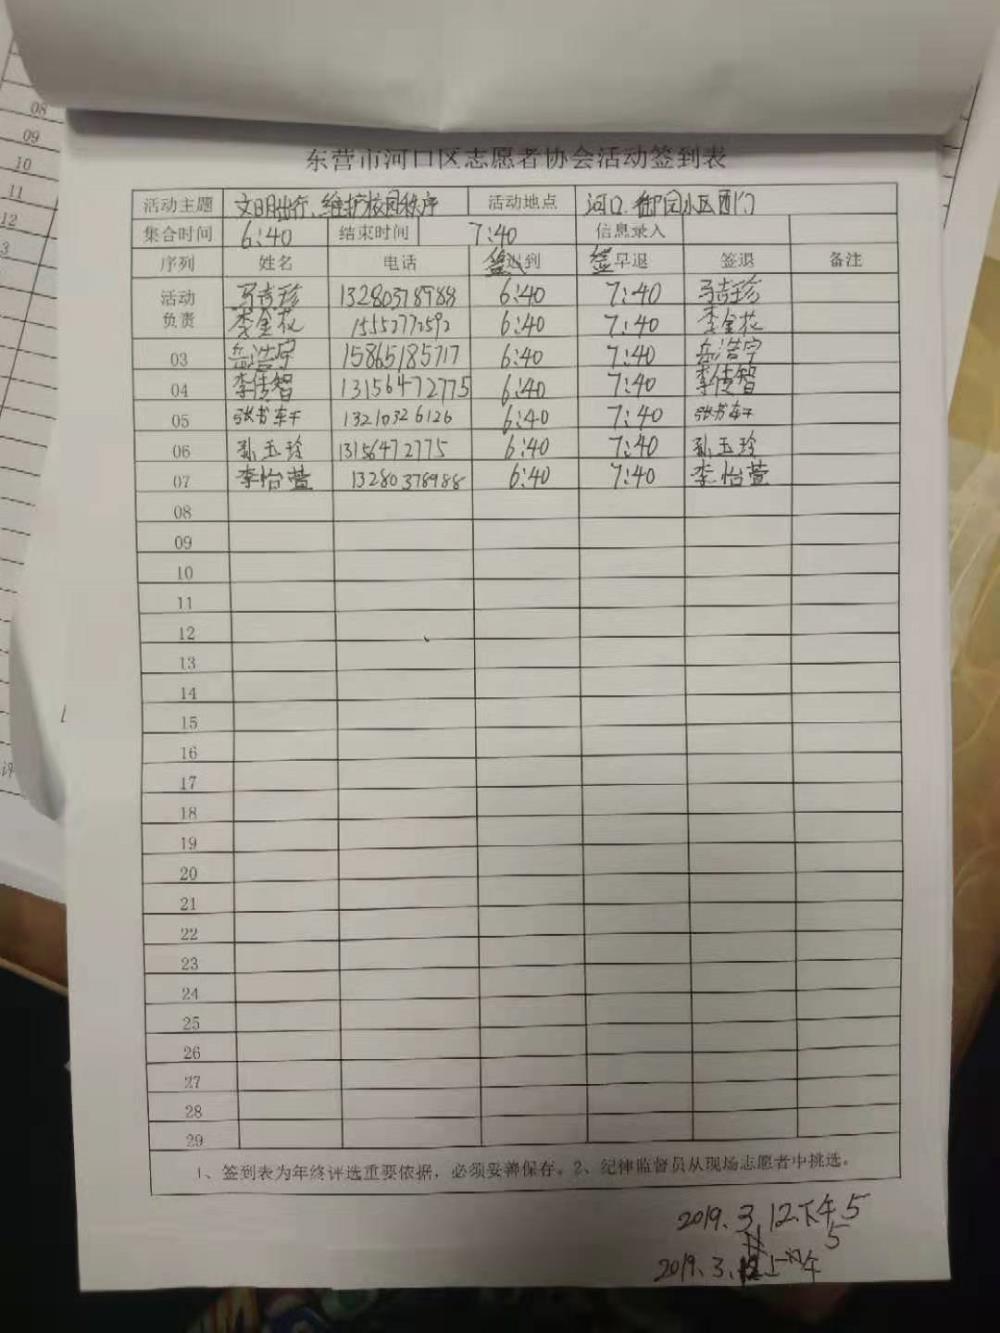 东营市河口区志愿者协会活动签到表
活动主题 文明出行、维护校园秩序 活动地点 河口.御园小区西门
集合时间 6:40 结束时间 7:40 信息录入
序列 姓名 电话 签到 签早退 签退 备注
活动负责 马吉珍 13280378988 6:40 7:40 马吉珍
李金花 15552772592 6:40 7:40 李金花
03 岳浩宇 15865185717 6:40 7:40 岳浩宇
04 李传智 13156472775 6:40 7:40 李传智
05 张书轩 13210326126 6:40 7:40 张书轩
06 孙玉玲 13156472775 6:40 7:40 孙玉玲
07 李怡萱 13280378988 6:40 7:40 李怡萱
08
09
10
11
12
13
14
15
16
17
18
19
20
21
22
23
24
25
26
27
28
29
1、签到表为年终评选重要依据，必须妥善保存。2、纪律监督员从现场志愿者中挑选。
2019.3.12下午5
5
2019.3.12上午
08
09
10
11
12